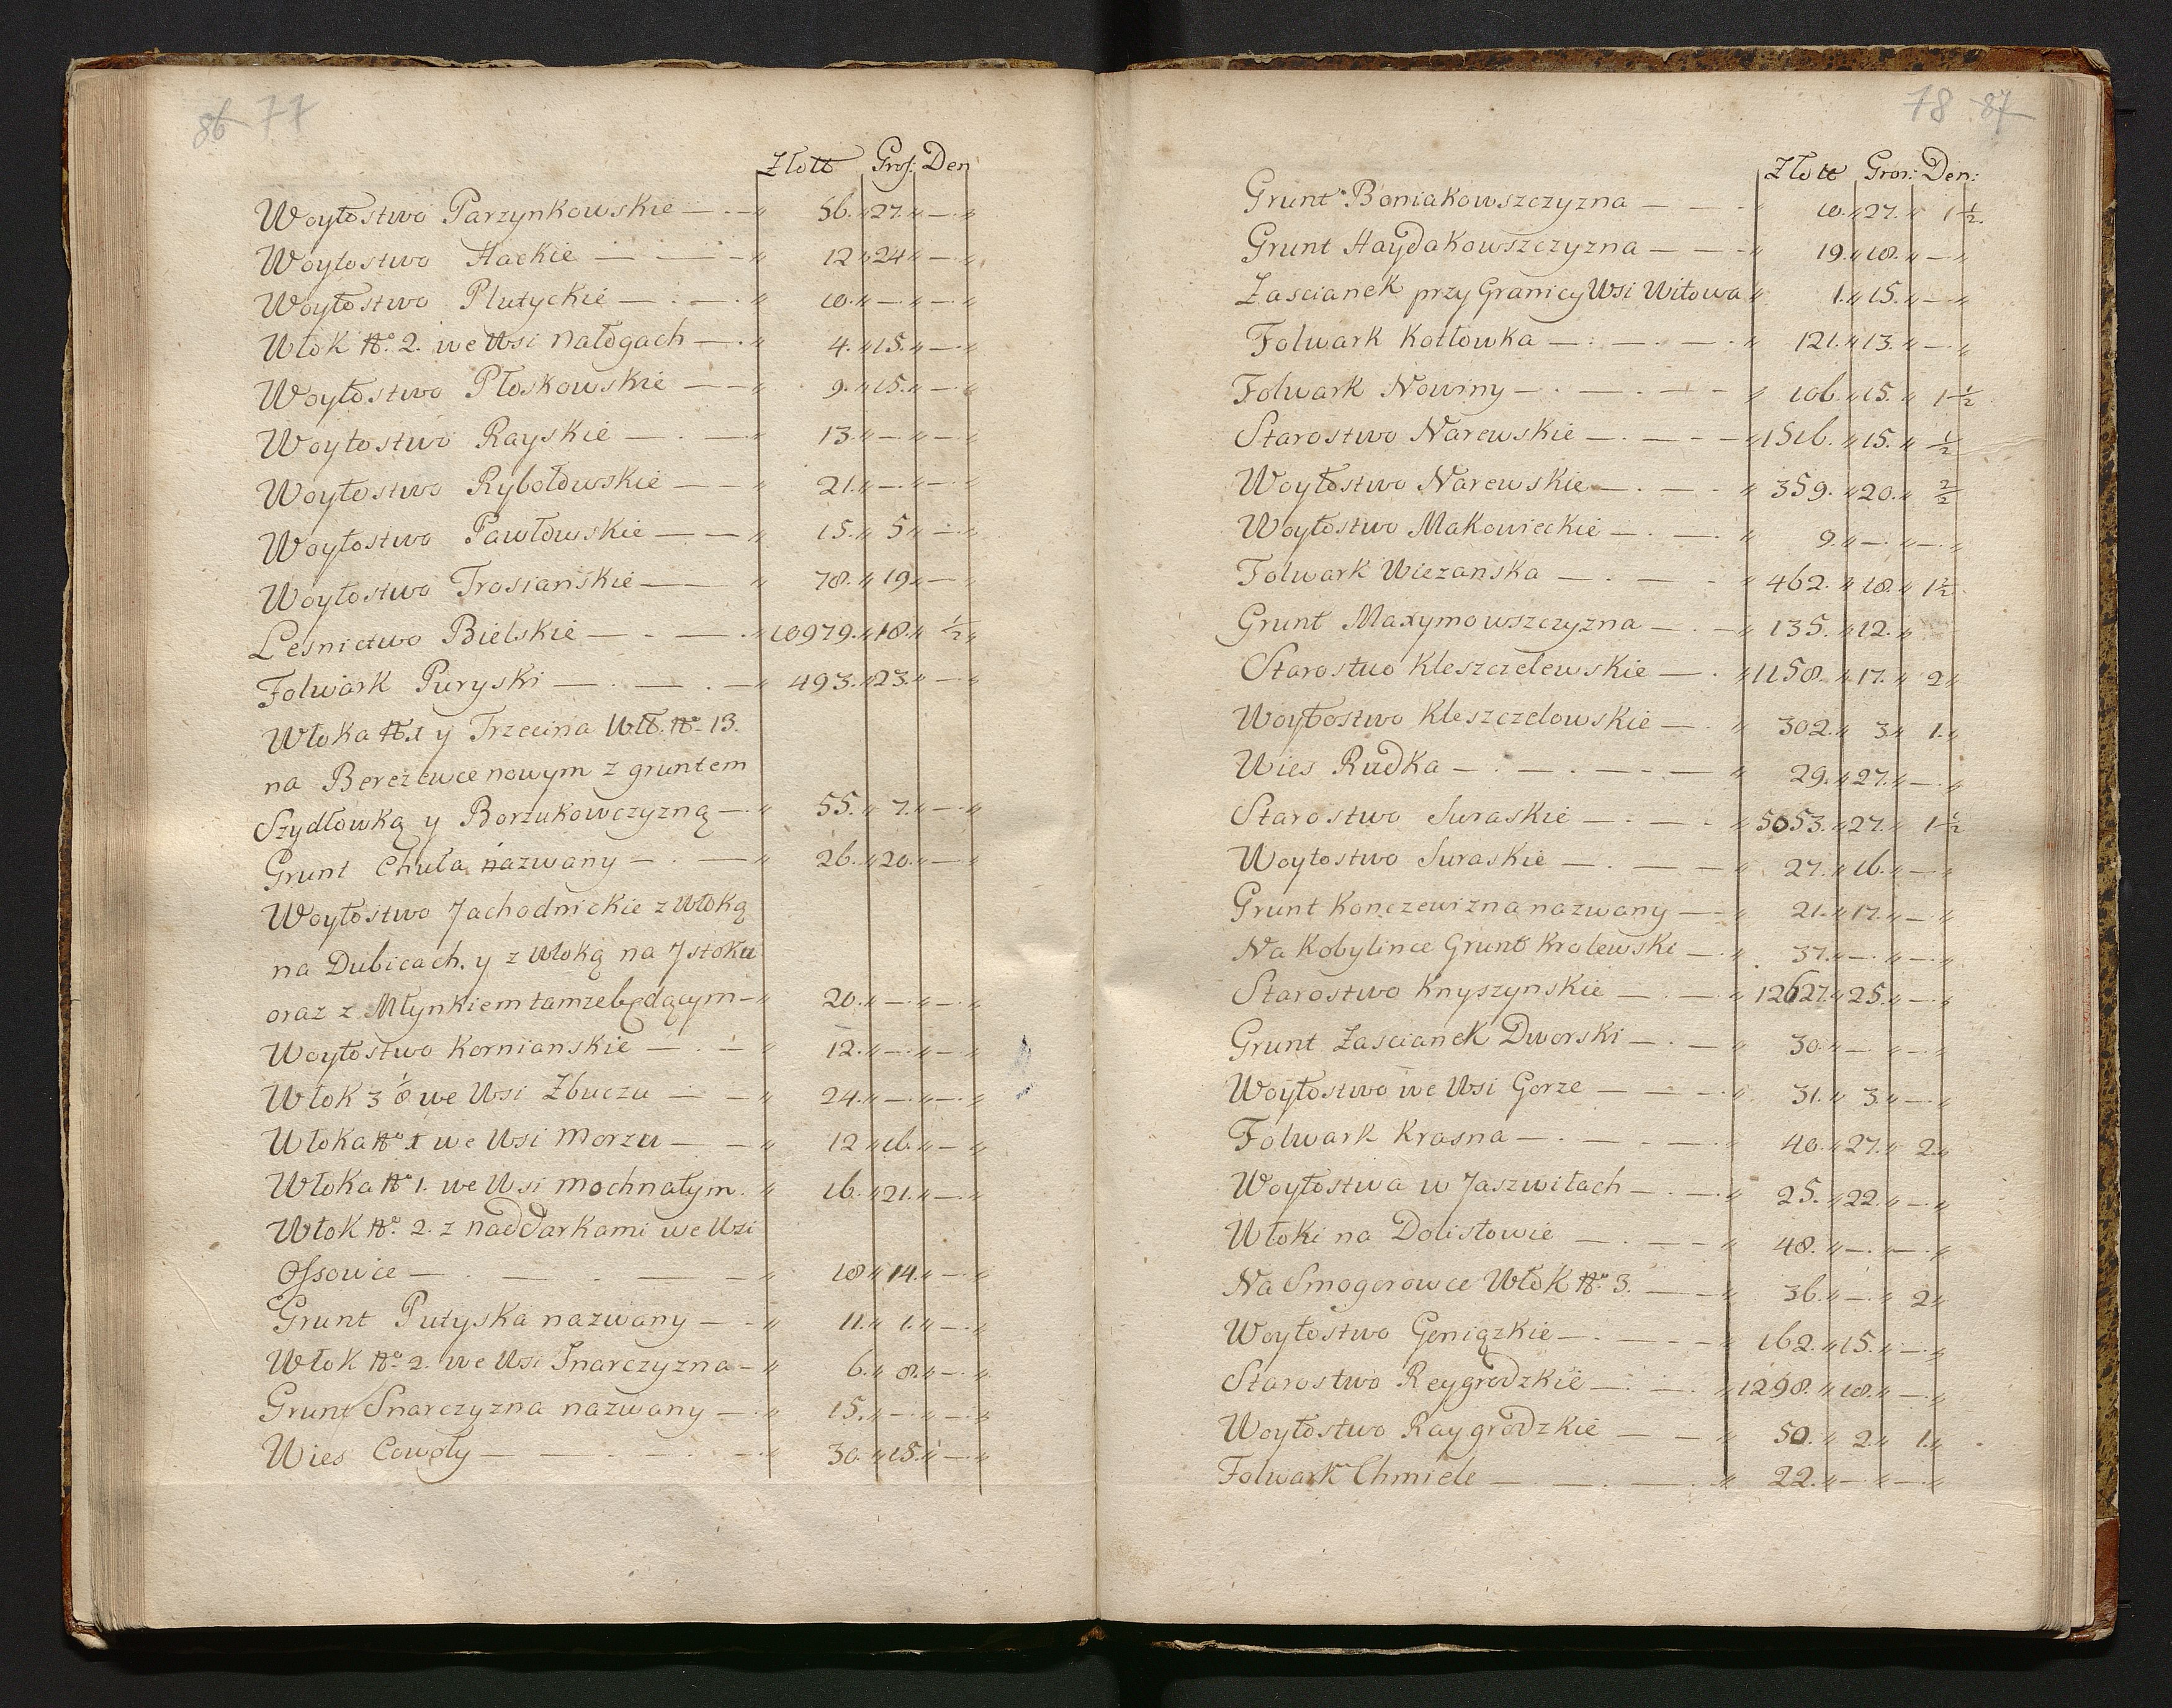 86 77
Złott Gros: Den
Woytostwo Parzynkowskie — . — „ 56. „ 27. „ — . „
Woytostwo Hackie — . — . — „ 12 „ 24 „ — . „
Woytostwo Plutyckie — . — . „ 10. „ — . „ — . „
Włok № 2. we Wsi Nałogach — . „ 4. „ 15. „ — . „
Woytostwo Płoskowskie — — „ 9. „ 15. „ — . „
Woytostwo Rayskie — . — „ 13. „ — . „ — . „
Woytostwo Rybołowskie — — „ 21. „ — . „ — . „
Woytostwo Pawłowskie — — „ 15. „ 5 „ — . „
Woytostwo Trosianskie — — „ 78. „ 19 „ — . „
Lesnictwo Bielskie — . — . „ 10979. „ 18. „ ½ „
Folwark Puryski — . — . — „ 493. „ 23. „ — . „
Włoka № 1 y Trzecina Włł. № 13.
na Berezewce nowym z gruntem
Szydłowką y Borzukowczyzną — . „ 55. „ 7. „ — . „
Grunt Chuła nazwany — . — „ 26. „ 20. „ — . „
Woytostwo Jachodnickie z Włoką
na Dubicach. y z Włoką na Jstoku
oraz z Młynkiem tamze będącym — „ 20. „ — . „ — . „
Woytostwo Kornianskie — . — „ 12. „ — . „ — . „
Włok 3 ⅛ we Wsi Zbuczu — . — „ 24. „ — . „ — . „
Włoka № 1 we Wsi Morzu — . — „ 12 „ 16. „ — . „
Włoka № 1. we Wsi Mochnatym. „ 16. „ 21. „ — . „
Włok № 2. z naddarkami we Wsi
Ossowce — . — . — — „ 18 „ 14. „ — . „
Grunt Putyska nazwany — . — „ 11. „ 1. „ — . „
Włok № 2. we Wsi Snarczyzna — „ 6. „ 8. „ — . „
Grunt Snarczyzna nazwany — . „ 15. „ — . „ — . „
Wies Cowoły — . — . — . „ 30. „ 15. „ — . „
78 87
Złott Gros: Den:
Grunt Boniakowszczyzna — — „ 10. „ 27. „ 1 ½.
Grunt Haydakowszczyzna — — „ 19. „ 18. „ — . „
Zascianek przy Granicy Wsi Witowa „ 1. „ 15. „ — . „
Folwark Kotłowka — . — . — . „ 121. „ 13. „ — . „
Folwark Nowiny — . — . — — „ 106. „ 15. „ 1 ½
Starostwo Narewskie — . — — „ 1516. „ 15. „ ½
Woytostwo Narewskie — . — . „ 359. „ 20. „ 2/2
Woytostwo Makowieckie — . — . „ 9. „ — . „ — . „
Folwark Wiezanska — . — . „ 462. „ 18. „ 1 ½.
Grunt Maxymowszczyzna — . — „ 135. „ 12. „
Starostwo Kleszczelewskie — . „ 1158. „ 17. „ 2 „
Woytostwo Kleszczelowskie — . „ 302. „ 3. „ 1. „
Wies Rudka — . — . — . — „ 29. „ 27. „ — . „
Starostwo Suraskie — . — . „ 5053. „ 27. „ 1 ½
Woytostwo Suraskie — . — — „ 27. „ 16. „ — . „
Grunt Konczewizna nazwany — — „ 21. „ 17. „ — . „
Na Kobylince Grunt Krolewski — . „ 37. „ — . „ — . „
Starostwo Knyszynskie — . — . „ 12627. „ 25. „ — . „
Grunt Zascianek Dworski — . — „ 30. „ — . „ — . „
Woytostwo we Wsi Gorze — — . „ 31. „ 3. „ — . „
Folwark Krasna — . — . — . „ 40. „ 27. „ 2. „
Woytostwa w Jaszwiłach — . — „ 25. „ 22. „ — . „
Włoki na Dolistowie — . — — „ 48. „ — . „ — . „
Na Smogorowce Włok № 3. — — „ 36. „ — . „ 2 „
Woytostwo Goniązkie — . — — „ 162. „ 15. „ — . „
Starostwo Reygrodzkie — . — . „ 1298. „ 18. „ — . „
Woytostwo Raygrodzkie — — „ 50. „ 2. „ 1. „
Folwark Chmiele — . — . — . „ 22. „ — . „ — . „